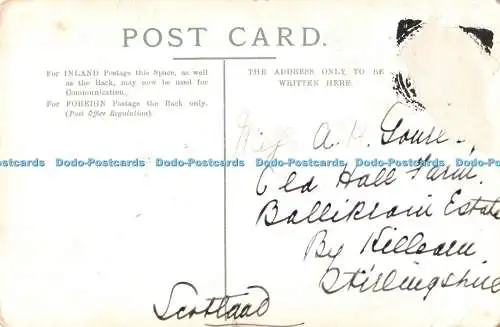 POST CARD.
For INLAND Postage this Space, as well
as the Back, may now be used for
Communication.
For FOREIGN Postage the Back only.
(Post Office Regulation).
THE ADDRESS ONLY TO BE
WRITTEN HERE.
Miss A.
Old Hall Farm.
Estate
By Killearn
Stirlingshire
Scotland
Dodo-Postcards Dodo-Postcards Dodo-Postcards Dodo-Postcards Dodo-Postcards